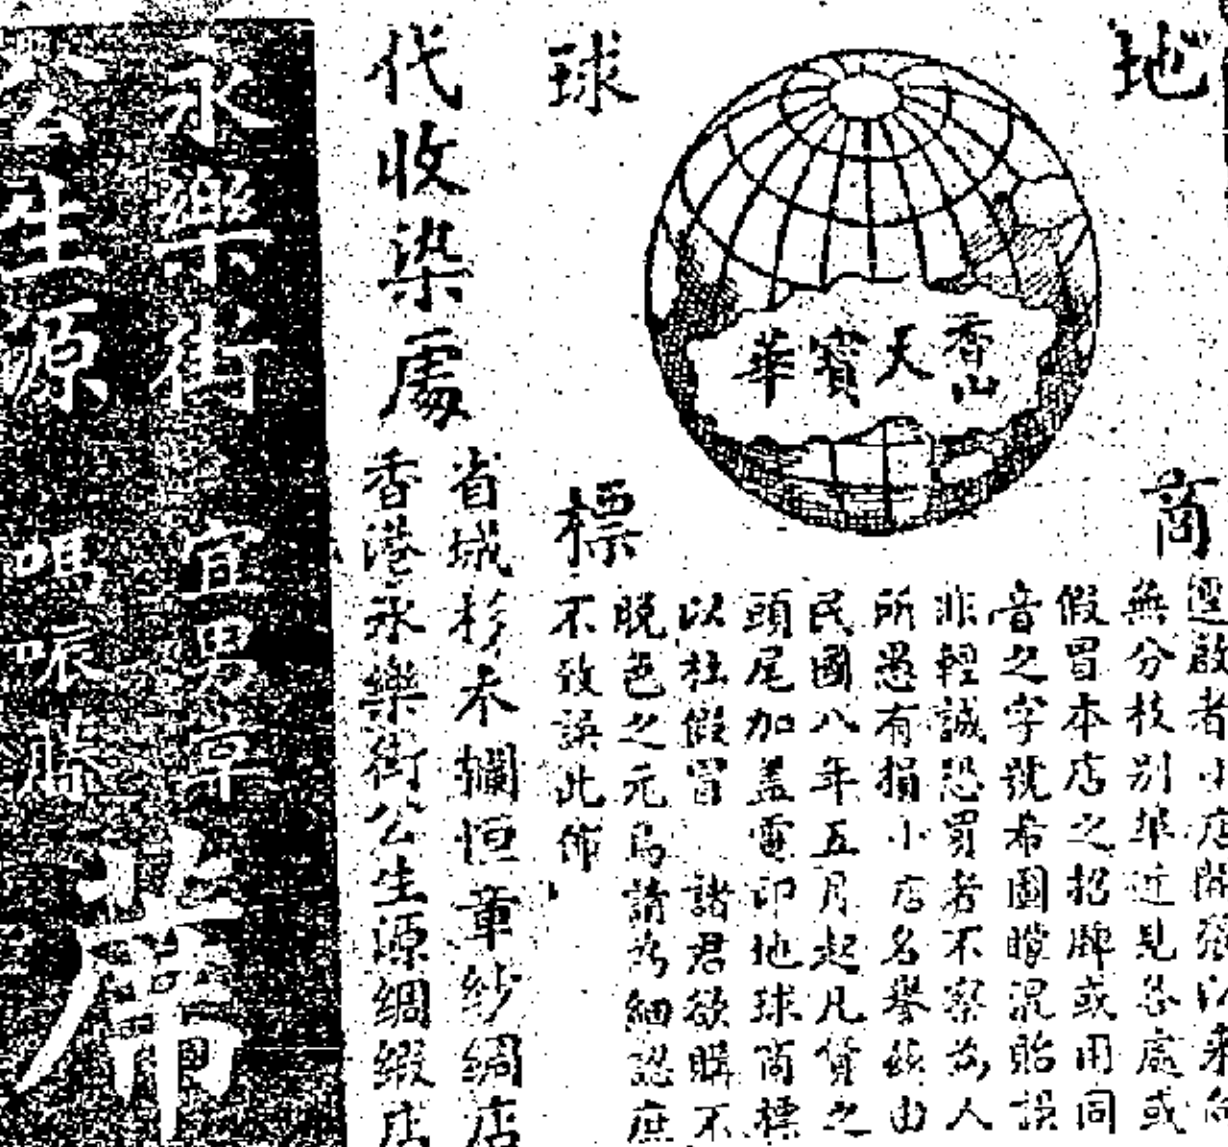 地球
商標
香山天寶華
逕啟者小店開張以來向
無分枝別埠近見各處或
假冒本店之招牌或用同
音之字號希圖曚混貽誤
非輕誠恐買者不察為人
所愚有損小店名譽茲由
民國八年五月起凡貨之
頭尾加盖電印地球商標
以杜假冒 諸君欲購不
脫色之元烏請為細認庶
不致誤此佈
代收染處
省城杉木欄恒章紗綢店
香港永樂街公生源綢緞店
永樂街
公生源
宜男草
席